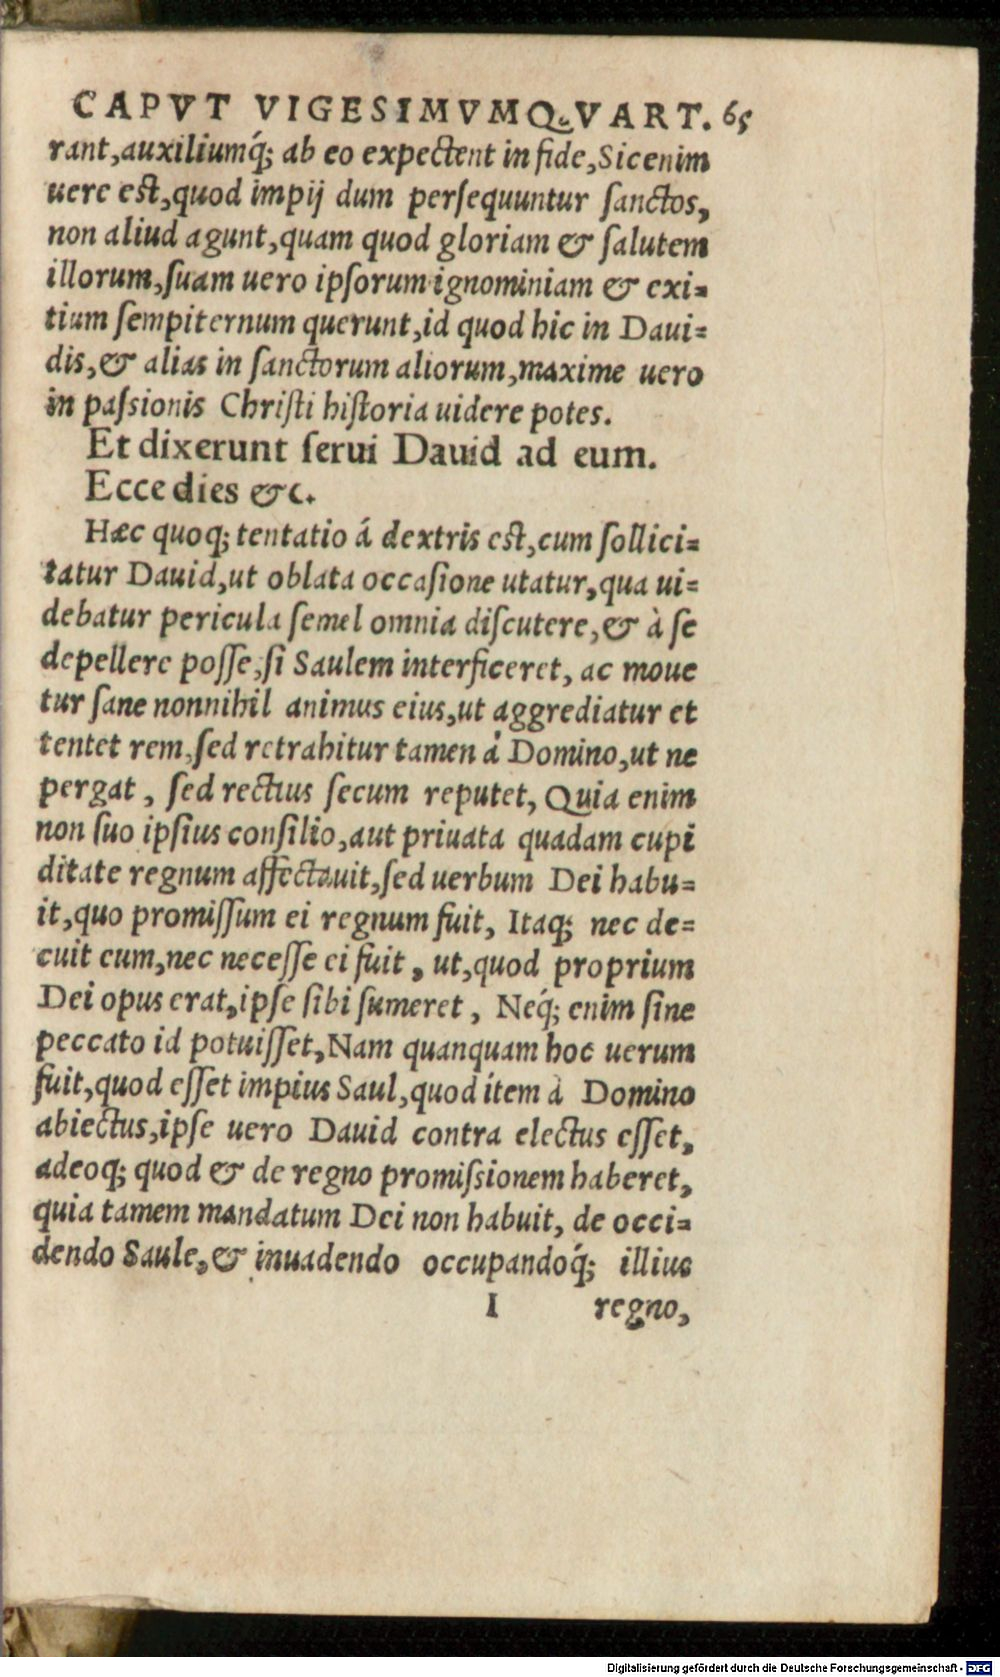 CAPVT VIGESIMVMQ.VART. 65
rant,auxiliumq́; ab eo expectent in fide,Sic enim
uere est,quod impij dum persequuntur sanctos,
non aliud agunt,quam quod gloriam & salutem
illorum,suam uero ipsorum ignominiam & exi=
tium sempiternum querunt,id quod hic in Daui=
dis,& alias in sanctorum aliorum,maxime uero
in passionis Christi historia uidere potes.
Et dixerunt serui Dauid ad eum.
Ecce dies &c.
Hæc quoq; tentatio á dextris est,cum sollici=
tatur Dauid,ut oblata occasione utatur,qua ui=
debatur pericula semel omnia discutere,& à se
depellere posse,si Saulem interficeret, ac moue
tur sane nonnihil animus eius,ut aggrediatur et
tentet rem,sed retrahitur tamen á Domino,ut ne
pergat, sed rectius secum reputet, Quia enim
non suo ipsius consilio,aut priuata quadam cupi
ditate regnum affectauit,sed uerbum Dei habu=
it,quo promissum ei regnum fuit, Itaq; nec de=
cuit eum,nec necesse ei fuit, ut,quod proprium
Dei opus erat,ipse sibi sumeret, Neq́; enim sine
peccato id potuisset,Nam quanquam hoc uerum
fuit,quod esset impius Saul,quod item à Domino
abiectus,ipse uero Dauid contra electus esset,
adeoq; quod & de regno promissionem haberet,
quia tamem mandatum Dei non habuit, de occi=
dendo Saule,& inuadendo occupandoq́; illius
I regno,
Digitalisierung gefördert durch die Deutsche Forschungsgemeinschaft - DFG